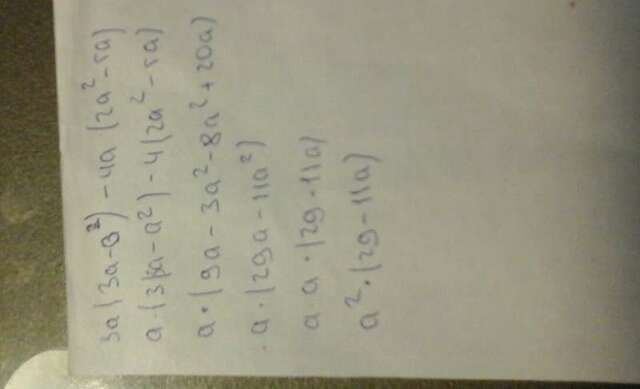 3a(3a-в²)-4a(2a²-5a)
a·(3(3a-a²)-4(2a²-5a)
a·(9a-3a²-8a²+20a)
a·(29a-11a²)
a a·(29-11a)
a²·(29-11a)